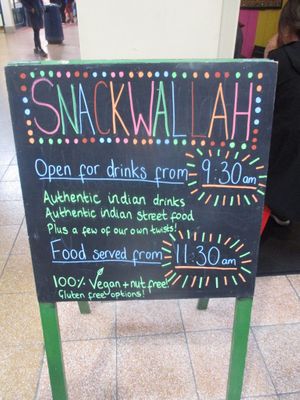 SNACKWALLAH
Open for drinks from 9:30am
Authentic indian drinks
Authentic indian street food
Plus a few of our own twists!
Food served from 11:30am
100% Vegan + nut free!
Gluten free options!